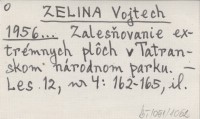 0 ZELINA Vojtech
1956... Zalesňovanie ex-
trémnych plôch v Tatran-
skom národnom parku. -
Les 12, nr 4: 162-165, il.